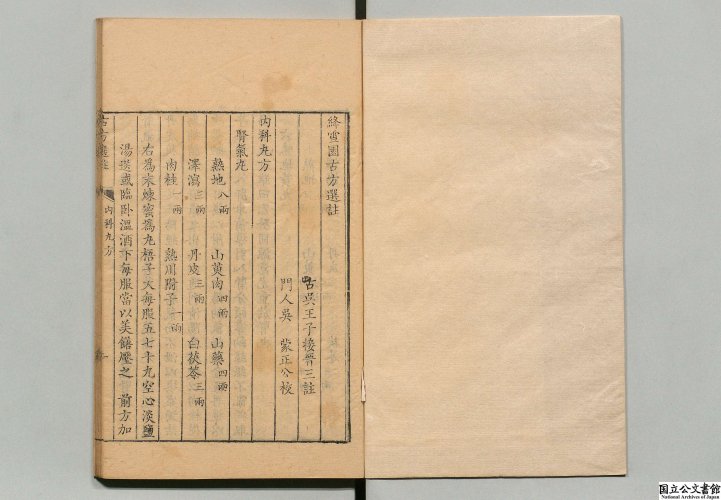 絳雪園古方選註
古吳王子接晉三註
門人吳　蒙正公校
內科丸方
腎氣丸
熟地八兩　山萸肉四兩　山藥四兩
澤瀉三兩　丹皮三兩　白茯苓三兩
肉桂一兩　熟川附子一兩
右為末煉蜜為丸梧子大每服五七十丸空心淡鹽
湯送或臨卧溫酒下每服當以美饍壓之　前方加
古方選註
內科丸方
国立公文書館
National Archives of Japan